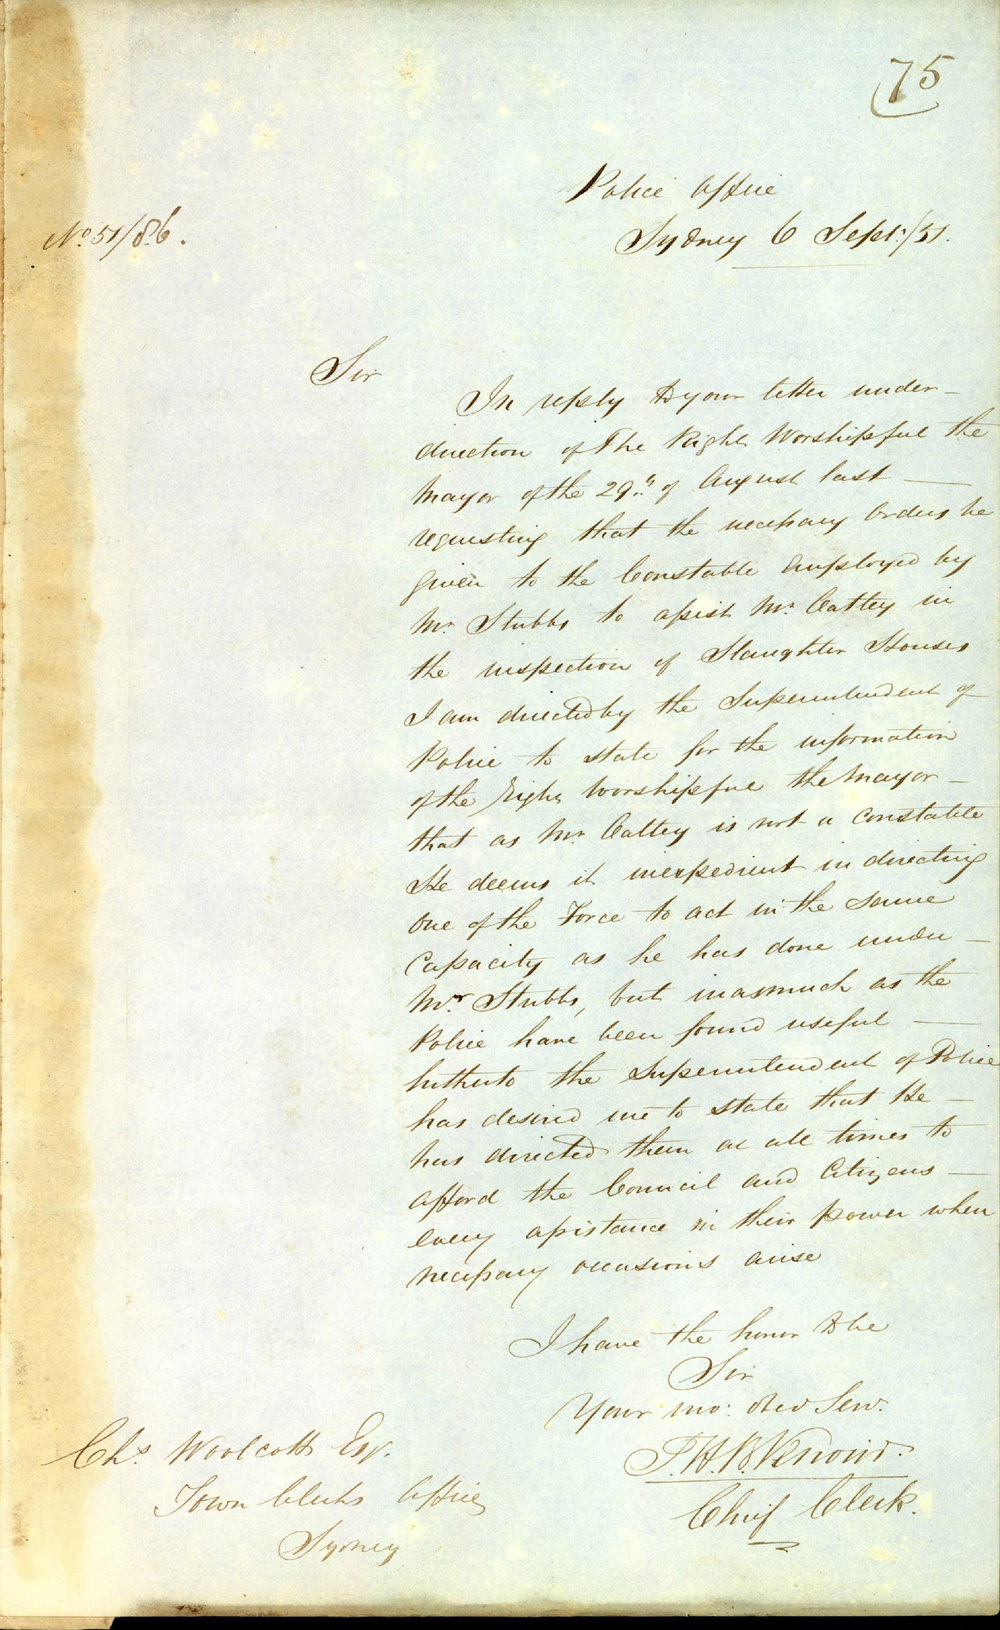 75
Police Office
No 51/86.
Sydney 6 Sept:/51.
Sir
In reply to your letter under
direction of The Right Worshipful the
Mayor of the 29th of August last
requesting that the necessary Orders be
given to the Constable employed by
Mr. Stubbs to assist Mr. Oatley in
the inspection of Slaughter Houses
I am directed by the Superintendent of
Police to state for the information
of the Right Worshipful the Mayor
that as Mr. Oatley is not a constable
He deems it inexpedient in directing
one of the Force to act in the same
capacity as he has done under
Mr Stubbs, but inasmuch as the
Police have been found useful
hitherto the Superintendent of Police
has desired me to state that He
has directed them at all times to
afford the Council and Citizens
every assistance in their power when
necessary occasions arise
I have the honor to be
Sir
Your mo: obed Serv.
Chief Clerk.
Chs. Woolcott Esq.
Town Clerks Office
Sydney